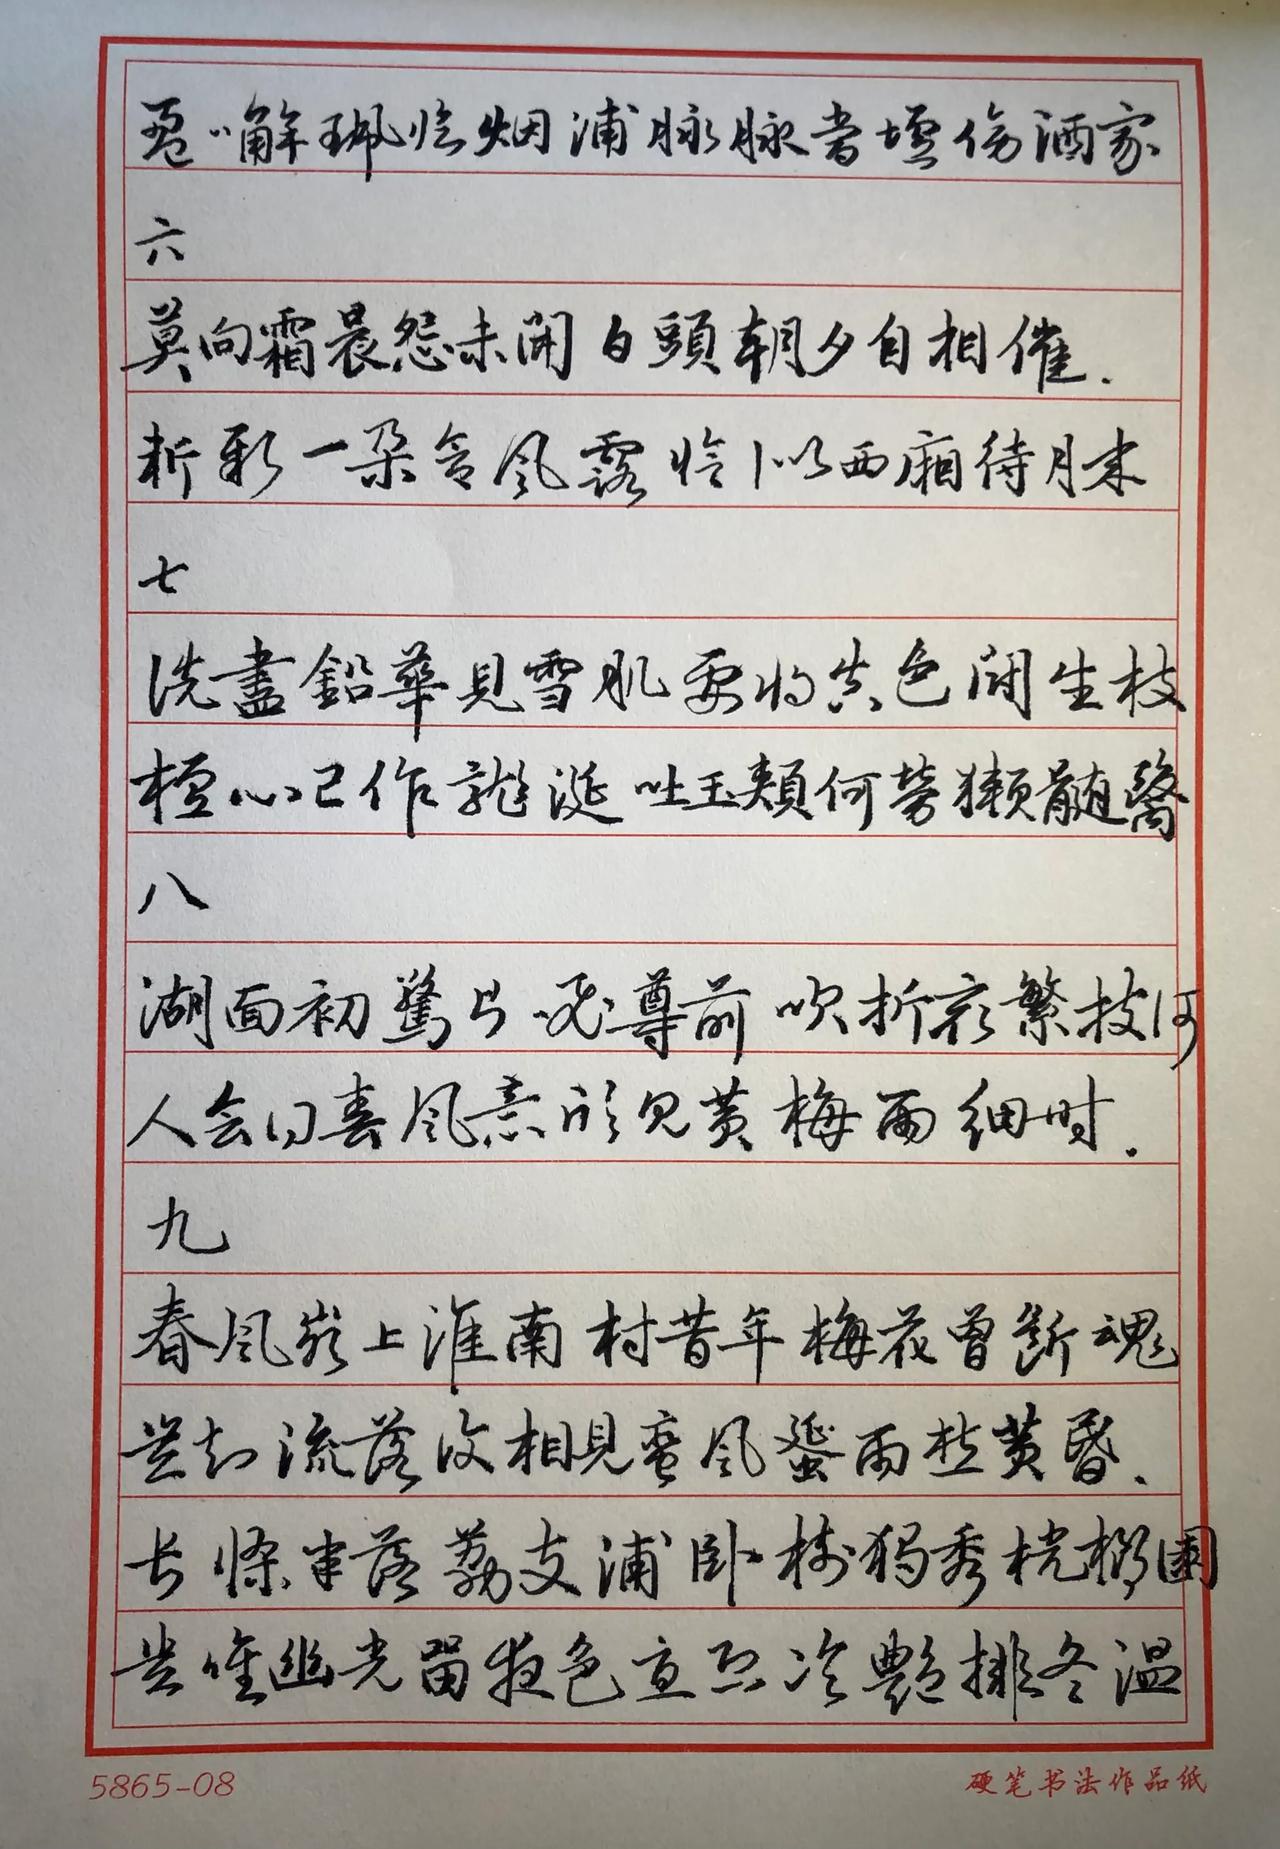 盈盈解珮临烟浦脉脉当垆傍酒家
六
莫向霜晨怨未開白頭朝夕自相催.
斬新一朵含风露恰似西廂待月来
七
洗盡鉛華見雪肌要将真色鬥生枝
檀心已作龍涎吐玉頰何勞獺髓醫
八
湖面初驚片片飞尊前吹折最繁枝何
人会得春风意怕见黄梅雨细时.
九
春风岭上淮南村昔年梅花曾断魂
岂知流落復相見蛮风蜑雨愁黄昏.
长條半落荔支浦卧树獨秀桄榔園
岂惟幽光留夜色直恐冷艷排冬温
5865-08
硬笔书法作品纸